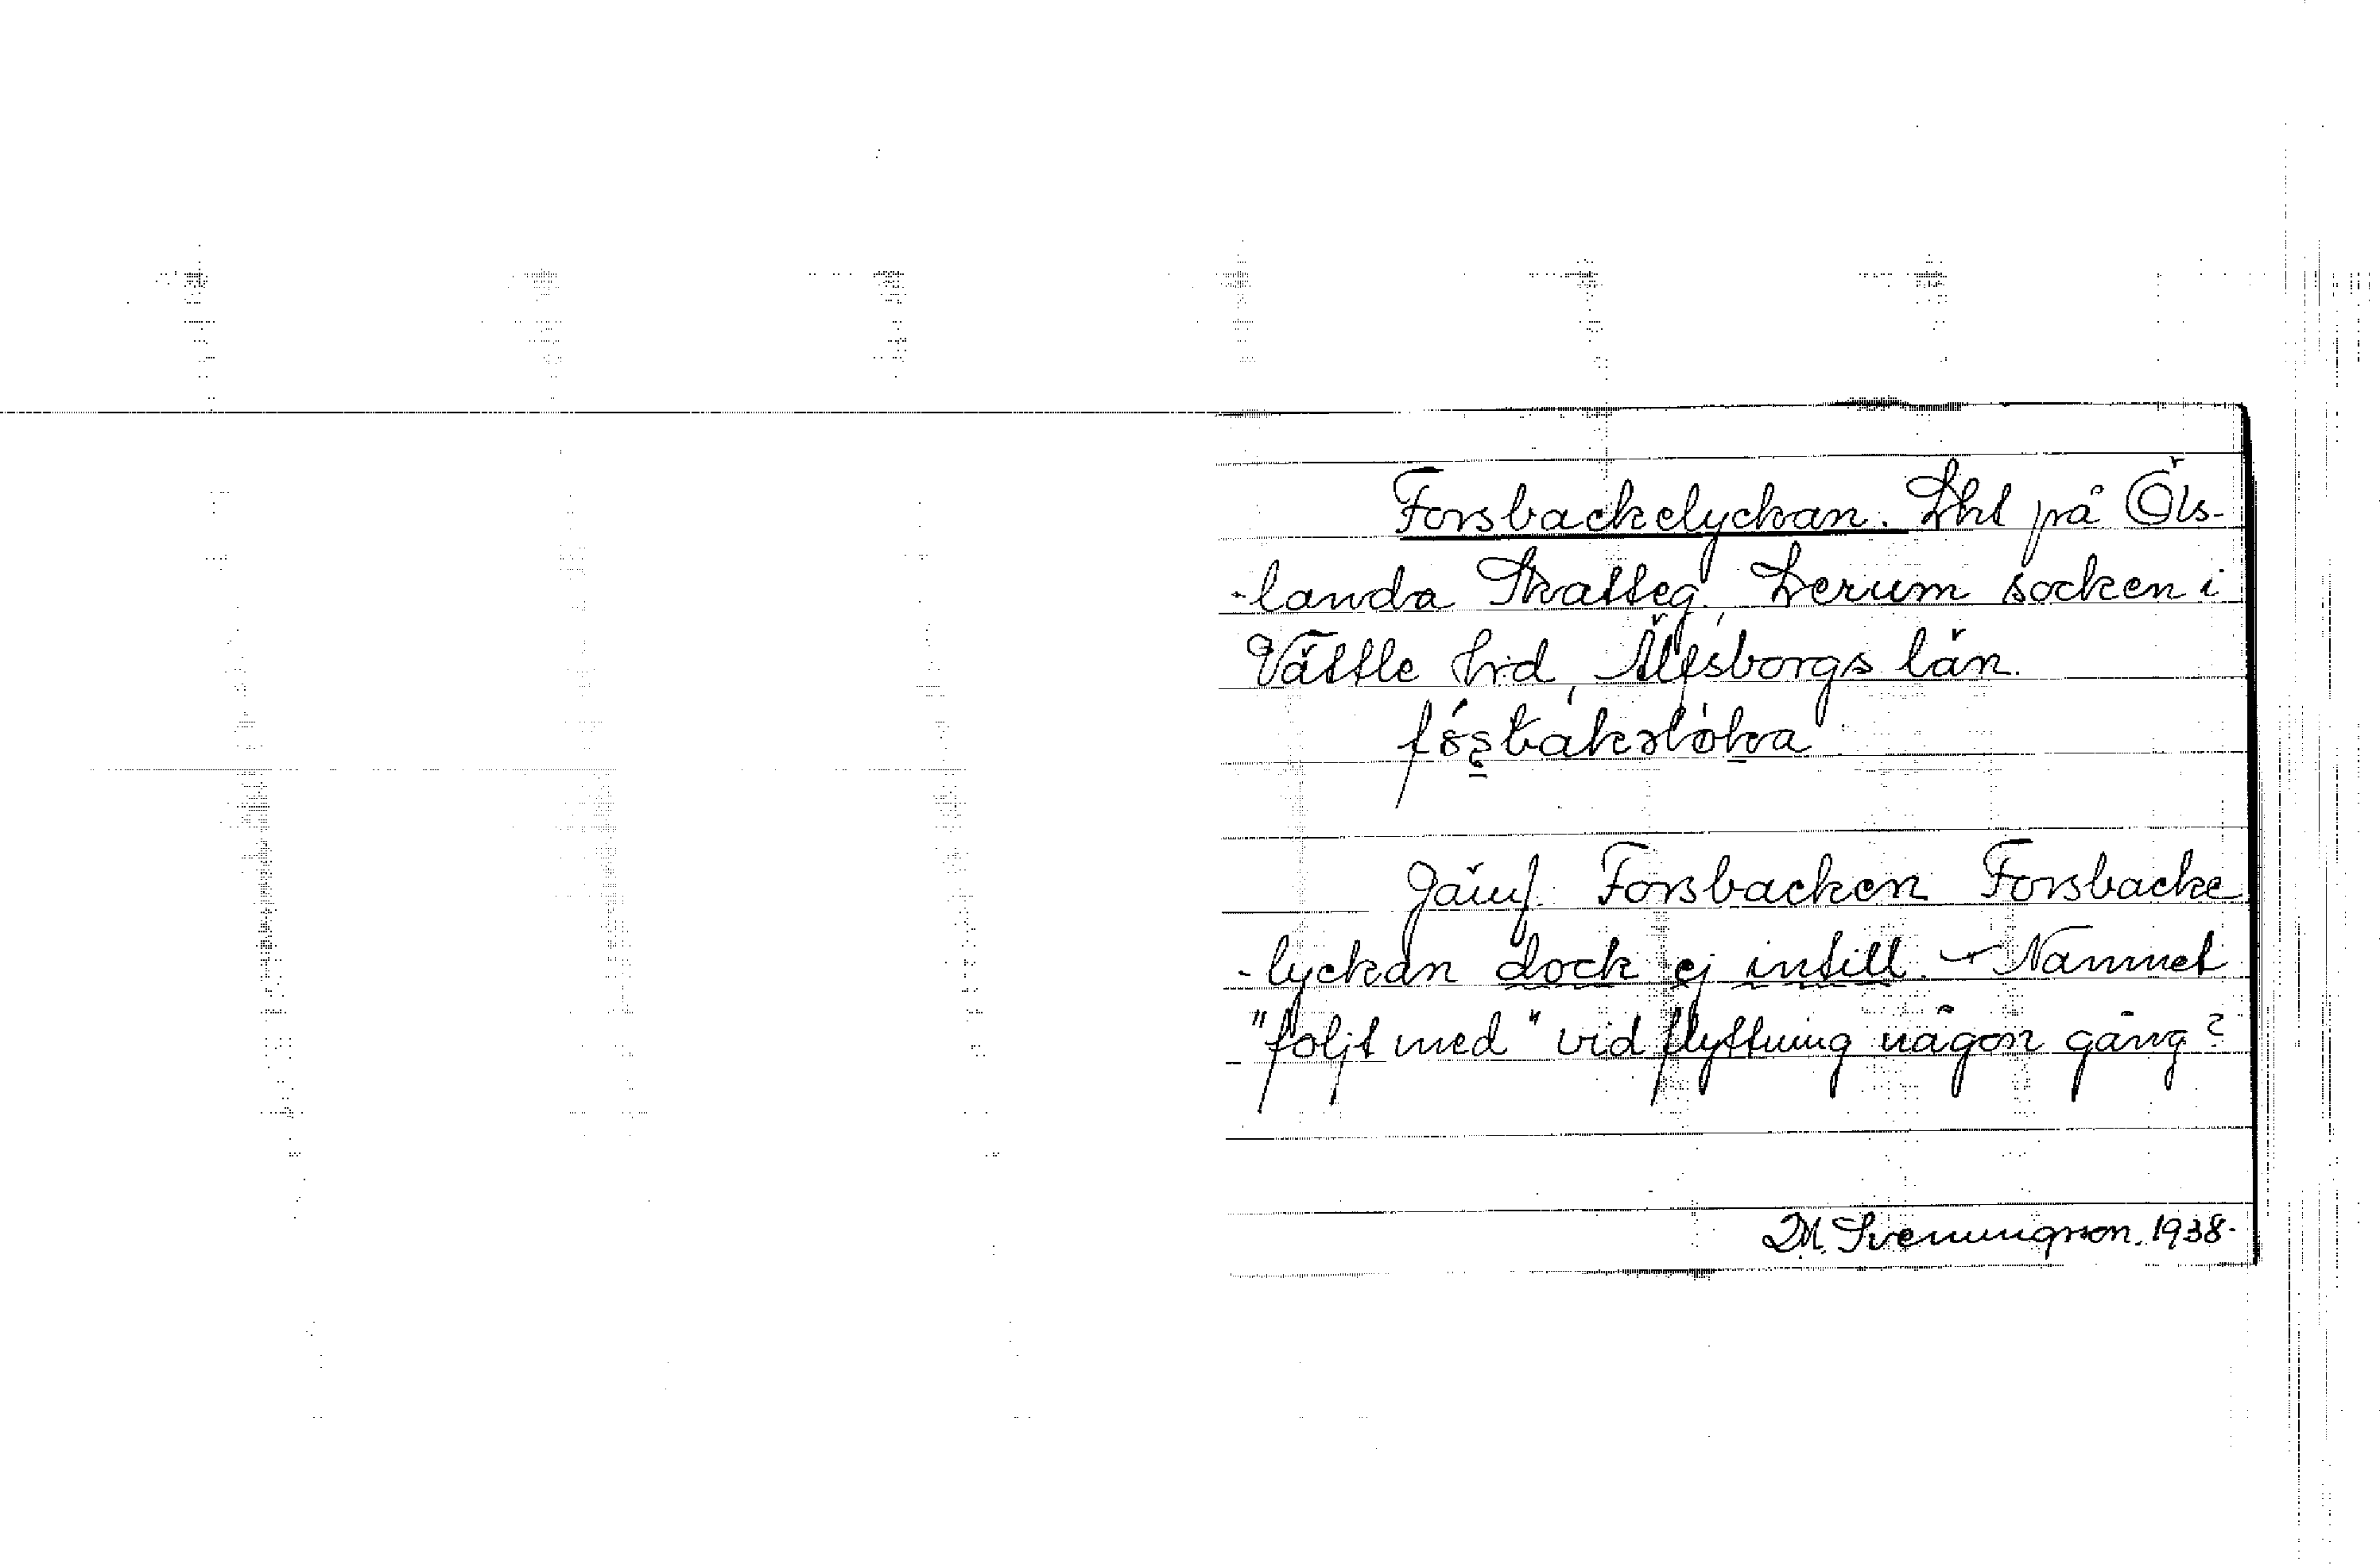 Forsbackelyckan. Lht på Öls-
-landa Skatteg., Lerum socken i
Vättle hrd, Älfsborgs län.
Jämf. Forsbacken Forsbacke
-lyckan dock ej intill. - Namnet
"följt med" vid flyttning någon gång?
D.M. Svenungsson. 1938.